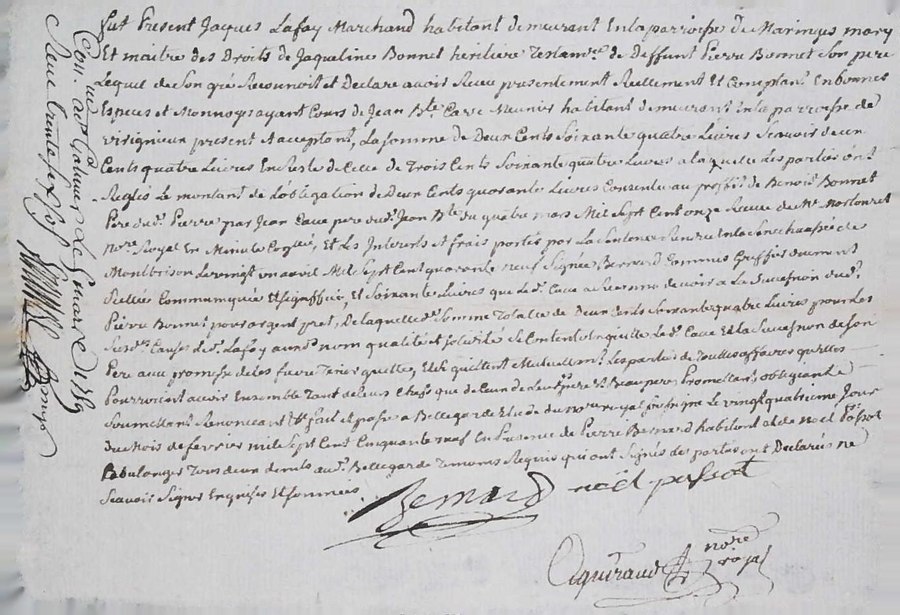 fut Present Jacques Lafay Marchand habitant demeurant En la parroisse de Maringes mary
Et maitre des Droits de Jaqueline Bonnet heritiere Testam.re de Deffunt Pierre Bonnet Son pere
Lequel de Son gré Reconnoit et Declare avoir Receu presentement Reellement Et Comptant En bonnes
Especes et Monnoye ayant Cours de Jean B.te Cave Meunier habitant demeurant En la parroisse de
virigneux present Acceptant, La somme de Deux Cents Soixante quatre Livres Scavoir deux
Cents quatre Livres En Reste de Celle de Trois Cents Soixante quatre Livres a laquelle Les parties ont
Reglé Le montant de L'obligation de Deux Cents quarante Livres Consentie au proffit de Benoit Bonnet
Pere dud. Pierre par Jean Cave pere dud. Jean B.te du quatre mars Mil Sept Cent onze Receue de M.e
no.re Royal En Minute, Et Les Interets et frais portés par La Sentence Rendue En la senechaussée de
Montbrison Le vingt un avril Mil Sept Cent quarante neuf Signée Bernard Commis Greffier duement
Scellée Communiquée Et signiffiée, Et Soixante Livres que Led. Cave de devoir a La Succession dud.
Pierre Bonnet pour argent preté, De laquelle d. Somme Totalle de Deux Cents Soixante quatre Livres pour Les
Susd. Causes led. Lafay aud. nom qualité et Se Contente Et quitte Led. Cave Et La Succession de Son
Pere avec promesse de Les faire Tenir quittes, Et Se quittent Mutuellem.t Les parties de Touttes affaires qu'elles
Pourroient avoir Ensemble Tant de Leurs Chefs que de beaupere Promettant, obligeant
Soumettant Renoncant &a fait et passé a Bellegarde Etude du no.re royal Soussigné Le vingt quatrieme Jour
Du Mois de fevrier mil Sept Cent Cinquante neuf En Presence de Pierre Bernard habitant et de noel Passot
Boulanger Tous deux dem.ts aud. Bellegarde Temoins Requis qui ont Signés Les parties ont Declarés ne
Scavoir Signer Enquises Et Sommées
Bernard noël passot
no.re
royal
Con.lé a St Galmier Le 9 mars 1759
Receu trente six sols